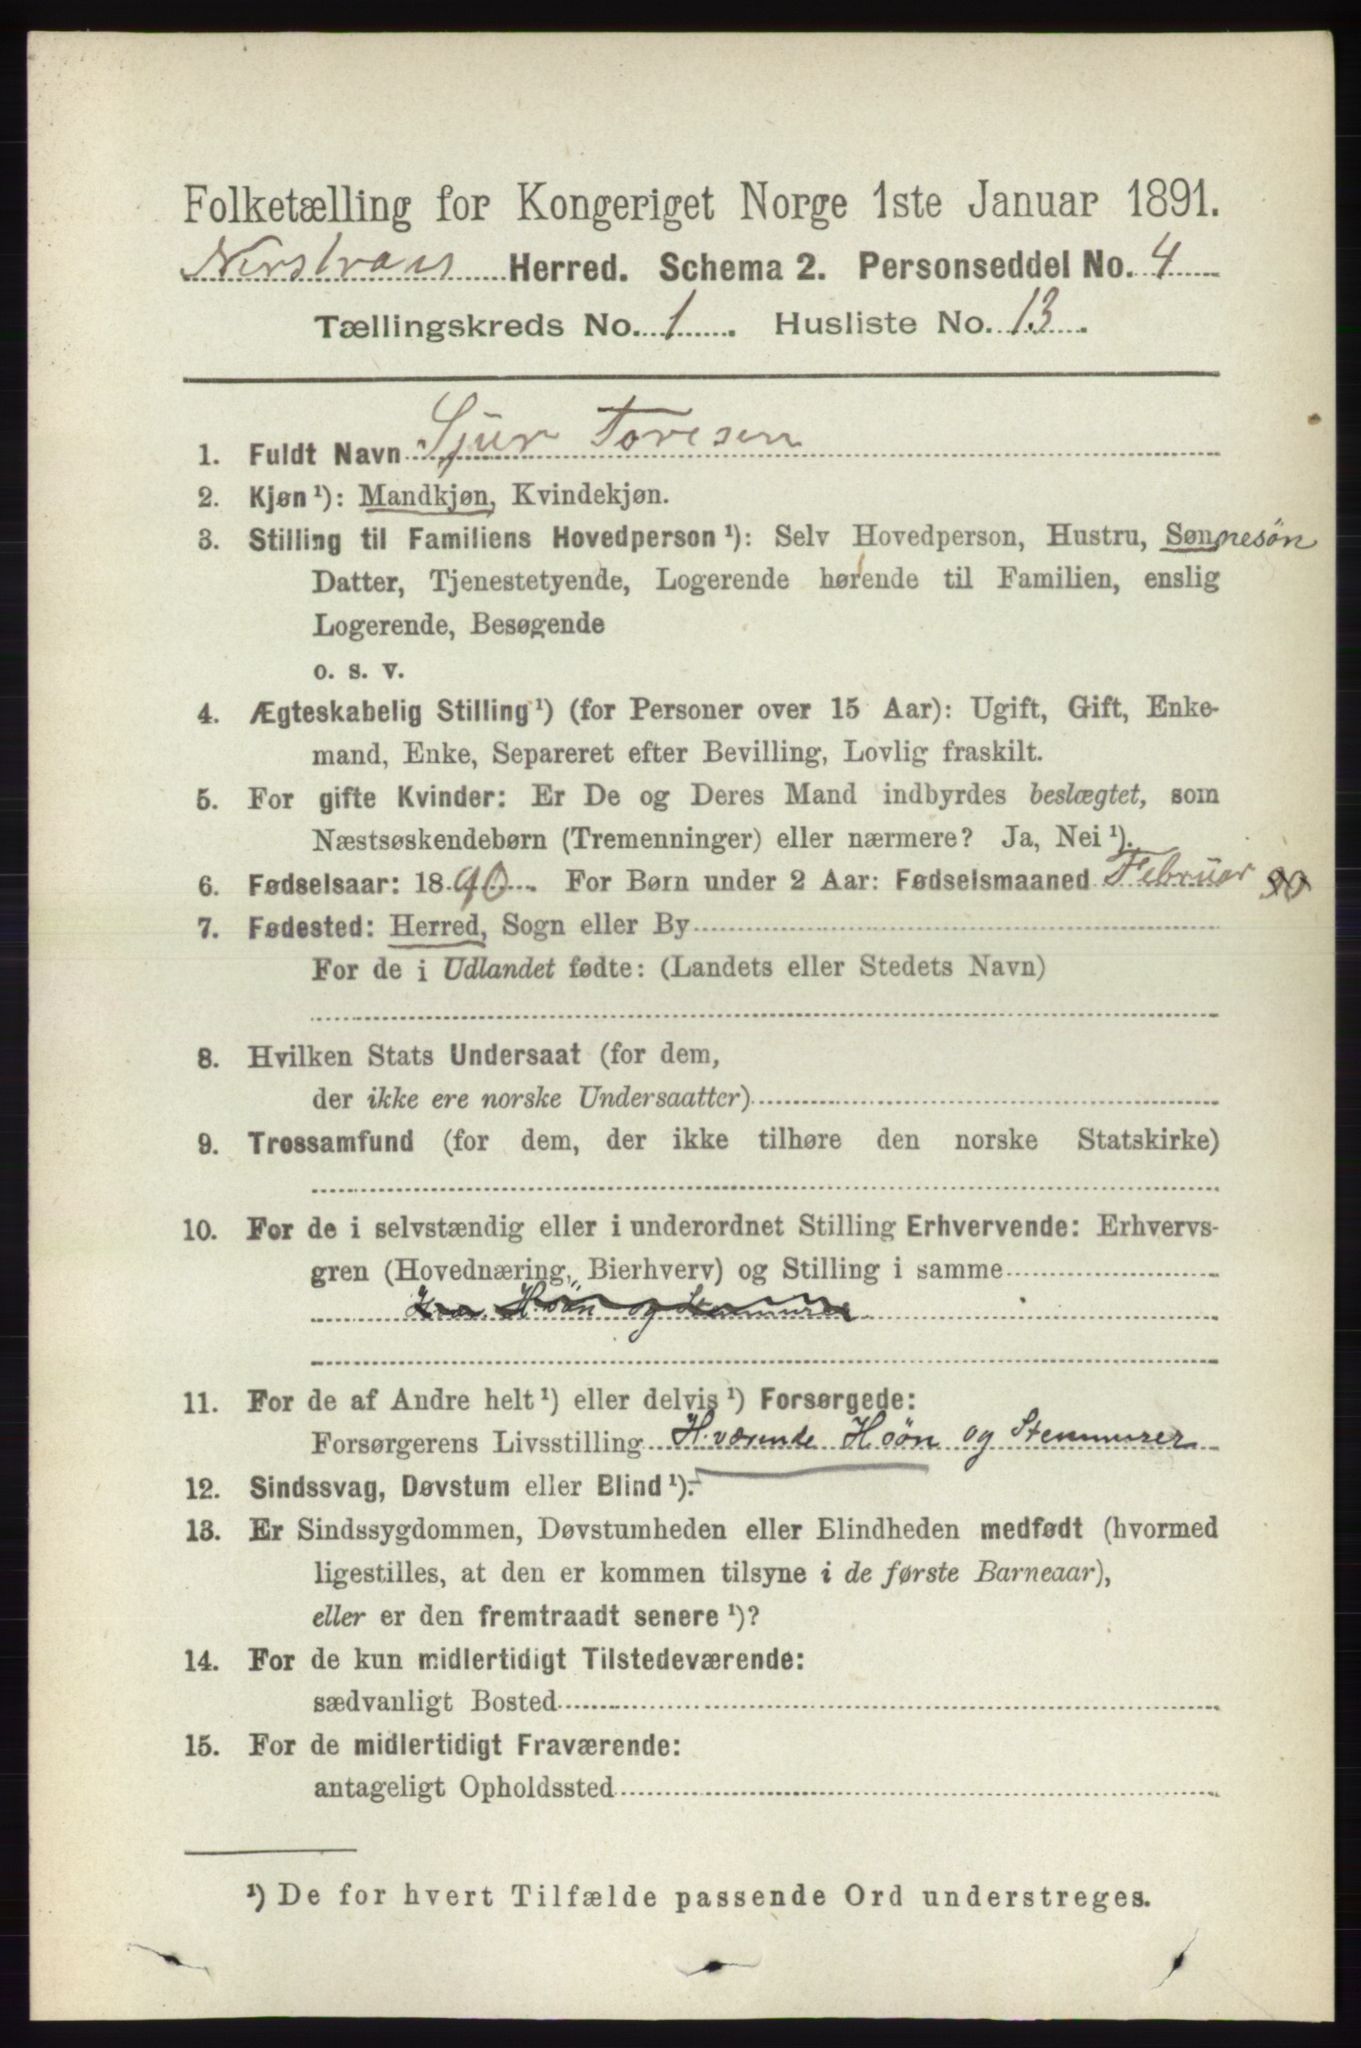 Folketælling for Kongeriget Norge 1ste Januar 1891.
Nerstrans Herred. Schema 2. Personseddel No. 4
Tællingskreds No. 1. Husliste No. 13.
1. Fuldt Navn Sjur Toresen
2. Kjøn ¹): Mandkjøn, Kvindekjøn.
3. Stilling til Familiens Hovedperson ¹): Selv Hovedperson, Hustru, Sønnesön
Datter, Tjenestetyende, Logerende hørende til Familien, enslig
Logerende, Besøgende
o. s. v.
4. Ægteskabelig Stilling ¹) (for Personer over 15 Aar): Ugift, Gift, Enke-
mand, Enke, Separeret efter Bevilling, Lovlig fraskilt.
5. For gifte Kvinder: Er De og Deres Mand indbyrdes beslægtet, som
Næstsøskendebørn (Tremenninger) eller nærmere? Ja, Nei ¹).
6. Fødselsaar: 1890. For Børn under 2 Aar: Fødselsmaaned Februar 90
7. Fødested: Herred, Sogn eller By
For de i Udlandet fødte: (Landets eller Stedets Navn)
8. Hvilken Stats Undersaat (for dem,
der ikke ere norske Undersaatter)
9. Trossamfund (for dem, der ikke tilhøre den norske Statskirke)
10. For de i selvstændig eller i underordnet Stilling Erhvervende: Erhvervs-
gren (Hovednæring, Bierhverv) og Stilling i samme
H.sön og Stenmurer
11. For de af Andre helt ¹) eller delvis ¹) Forsørgede:
Forsørgerens Livsstilling H.værende H sön og Stenmurer
12. Sindssvag, Døvstum eller Blind ¹).
13. Er Sindssygdommen, Døvstumheden eller Blindheden medfødt (hvormed
ligestilles, at den er kommen tilsyne i de første Barneaar),
eller er den fremtraadt senere ¹)?
14. For de kun midlertidigt Tilstedeværende:
sædvanligt Bosted
15. For de midlertidigt Fraværende:
antageligt Opholdssted
¹) De for hvert Tilfælde passende Ord understreges.